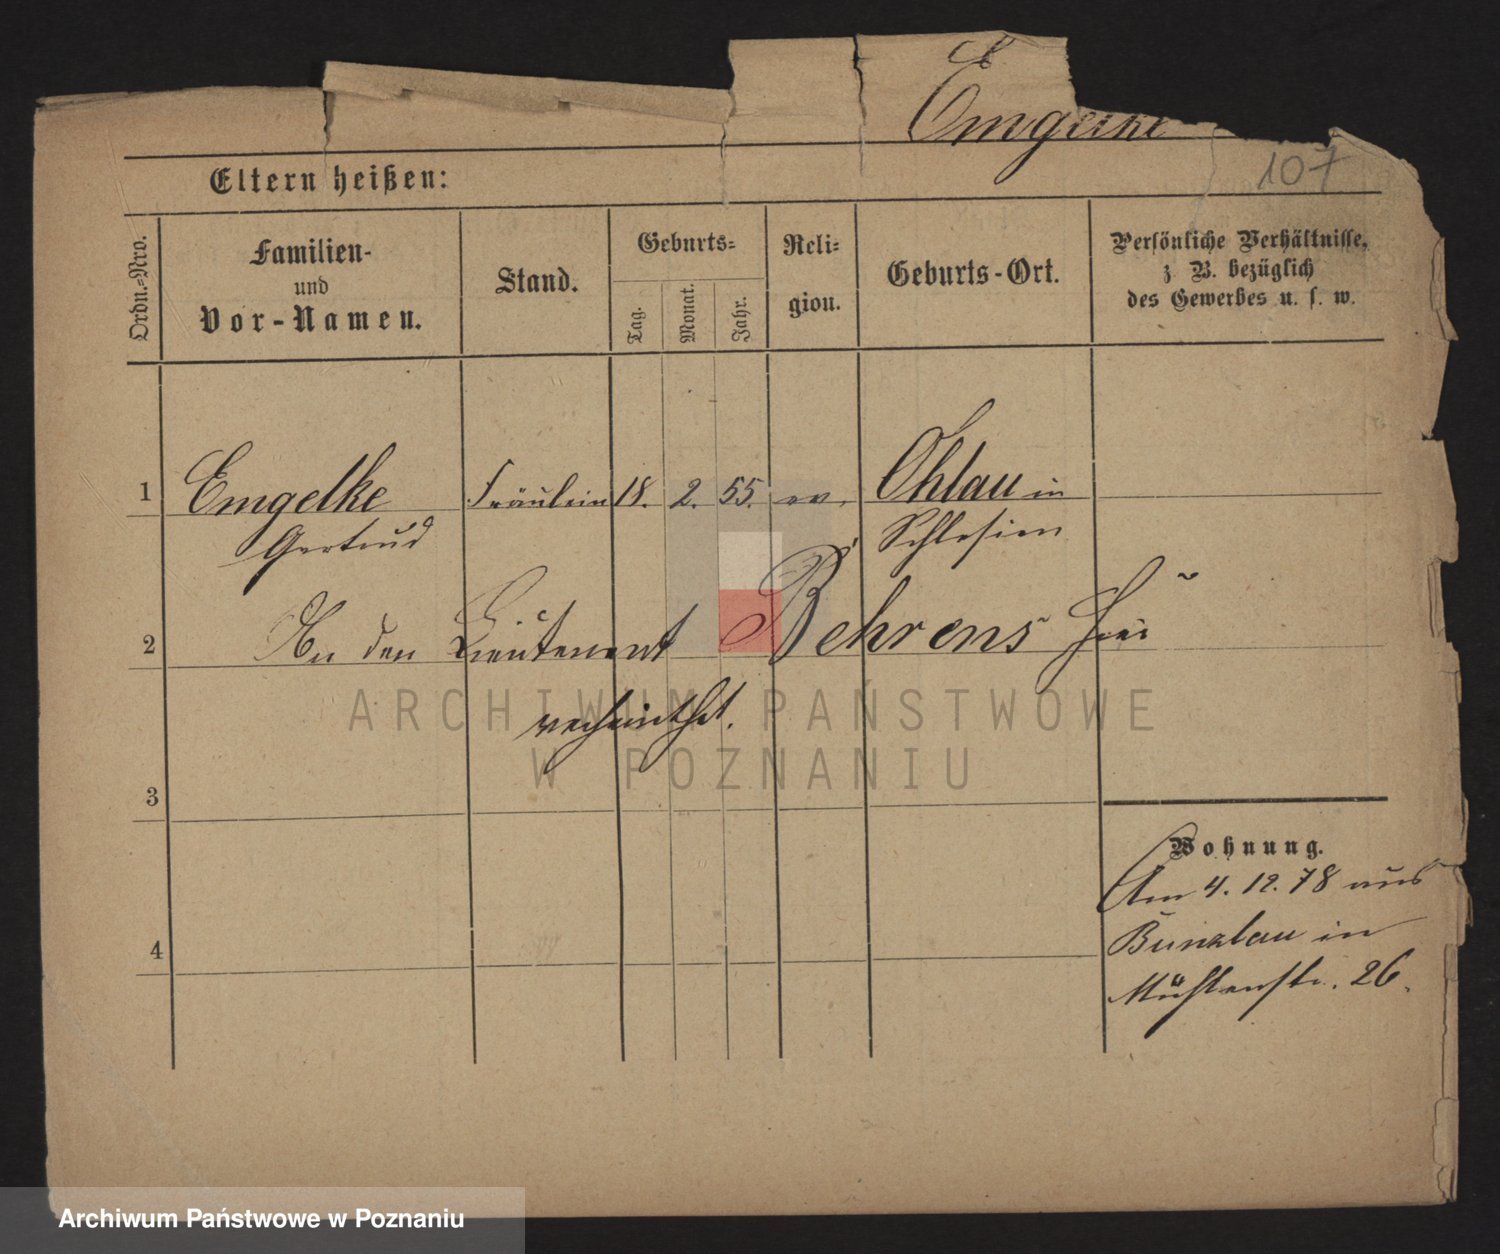 Emgelke
107
Eltern heißen:
Ordn.=Nro.
Familien-
und
Vor-Namen.
Stand.
Geburts=
Tag.
Monat.
Jahr.
Reli=
gion.
Geburts-Ort.
Persönliche Verhältnisse,
z. B. bezüglich
des Gewerbes u. s. w.
1 Emgelke Fräulein 18. 2. 55. ev. Ohlau in
Gertrud Schlesien
2 An den Lieutenant Behrens hier
verheirathet.
3
Wohnung.
Am 4. 12. 78 aus
Bunzlau in
Mühlenstr. 26.
4
ARCHIWUM PAŃSTWOWE
W POZNANIU
Archiwum Państwowe w Poznaniu